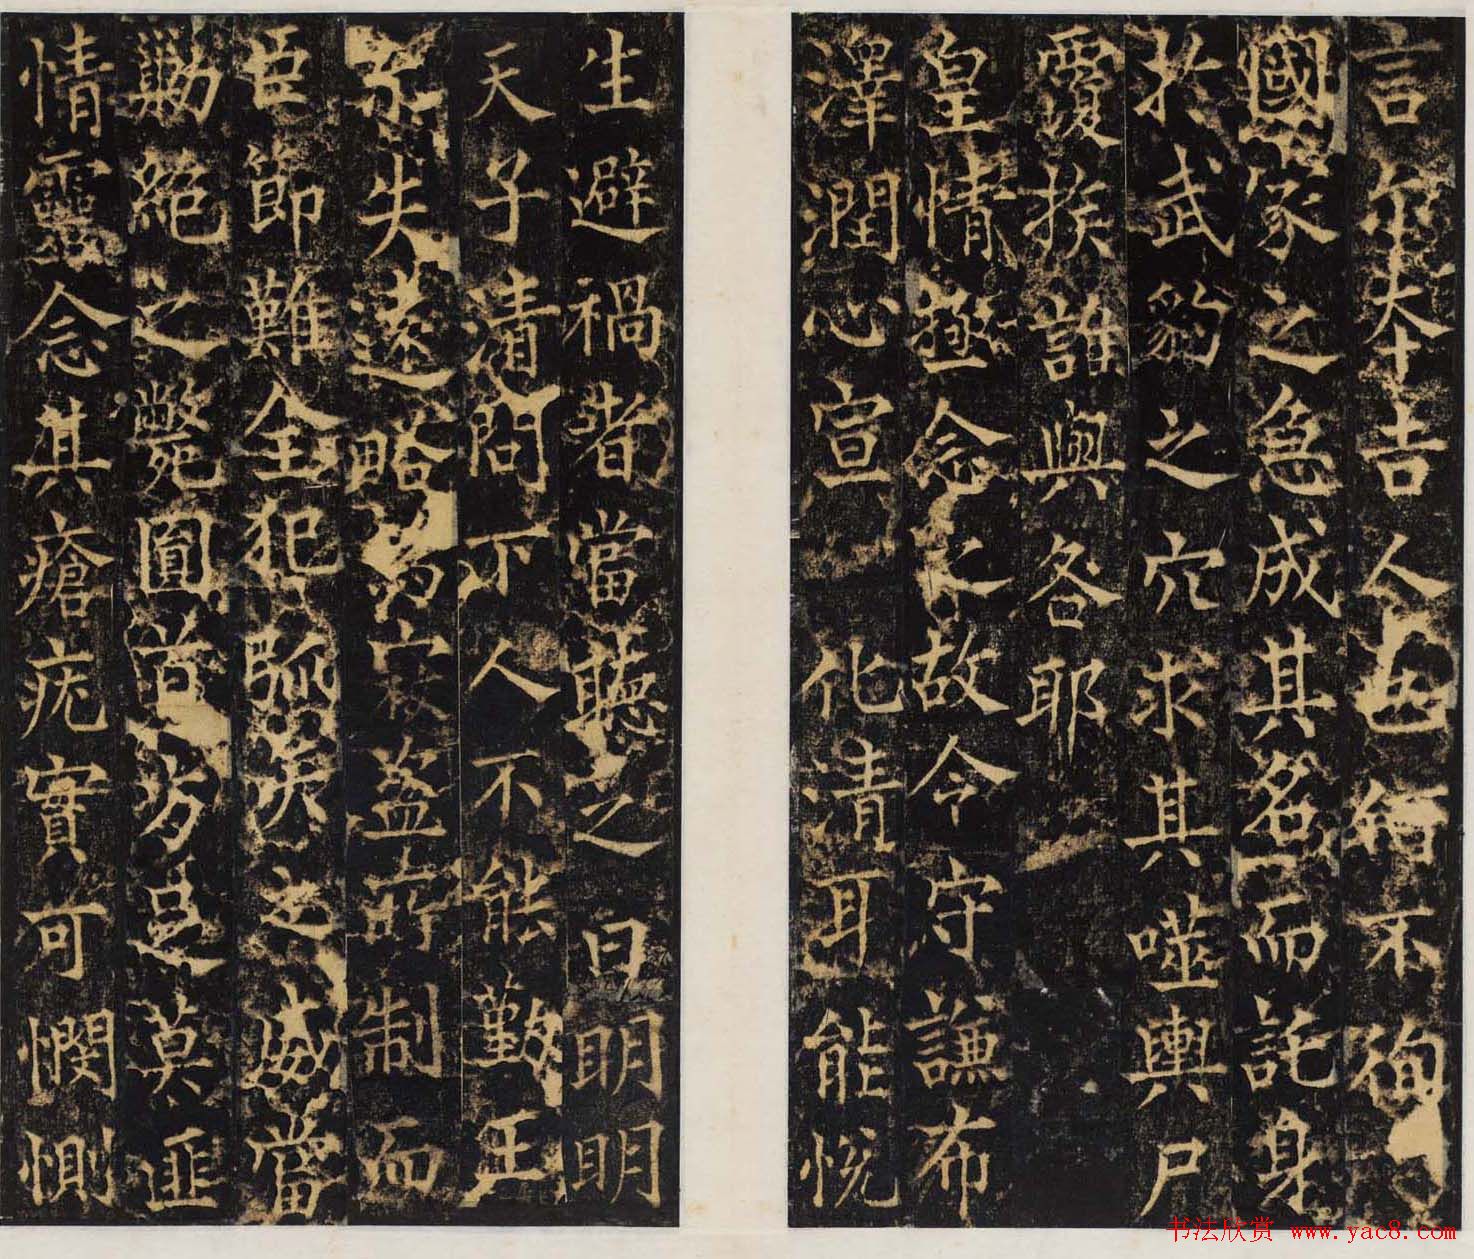 言尔夲吉人也不徇
國家之急成其名而託身
扵武豹之穴求其噬輿尸
覆族誰與咎耶
皇情極念之故令守謙布
澤潤心宣 化清耳能悅
生避禍者當聽之曰明明
天子清問下人不能勤王
失遠略制而
臣節難全犯弧矢之威當
勦絕之斃圓首方足莫匪
情靈念其瘡疣實可憫惻
书法欣赏 www.yac8.com